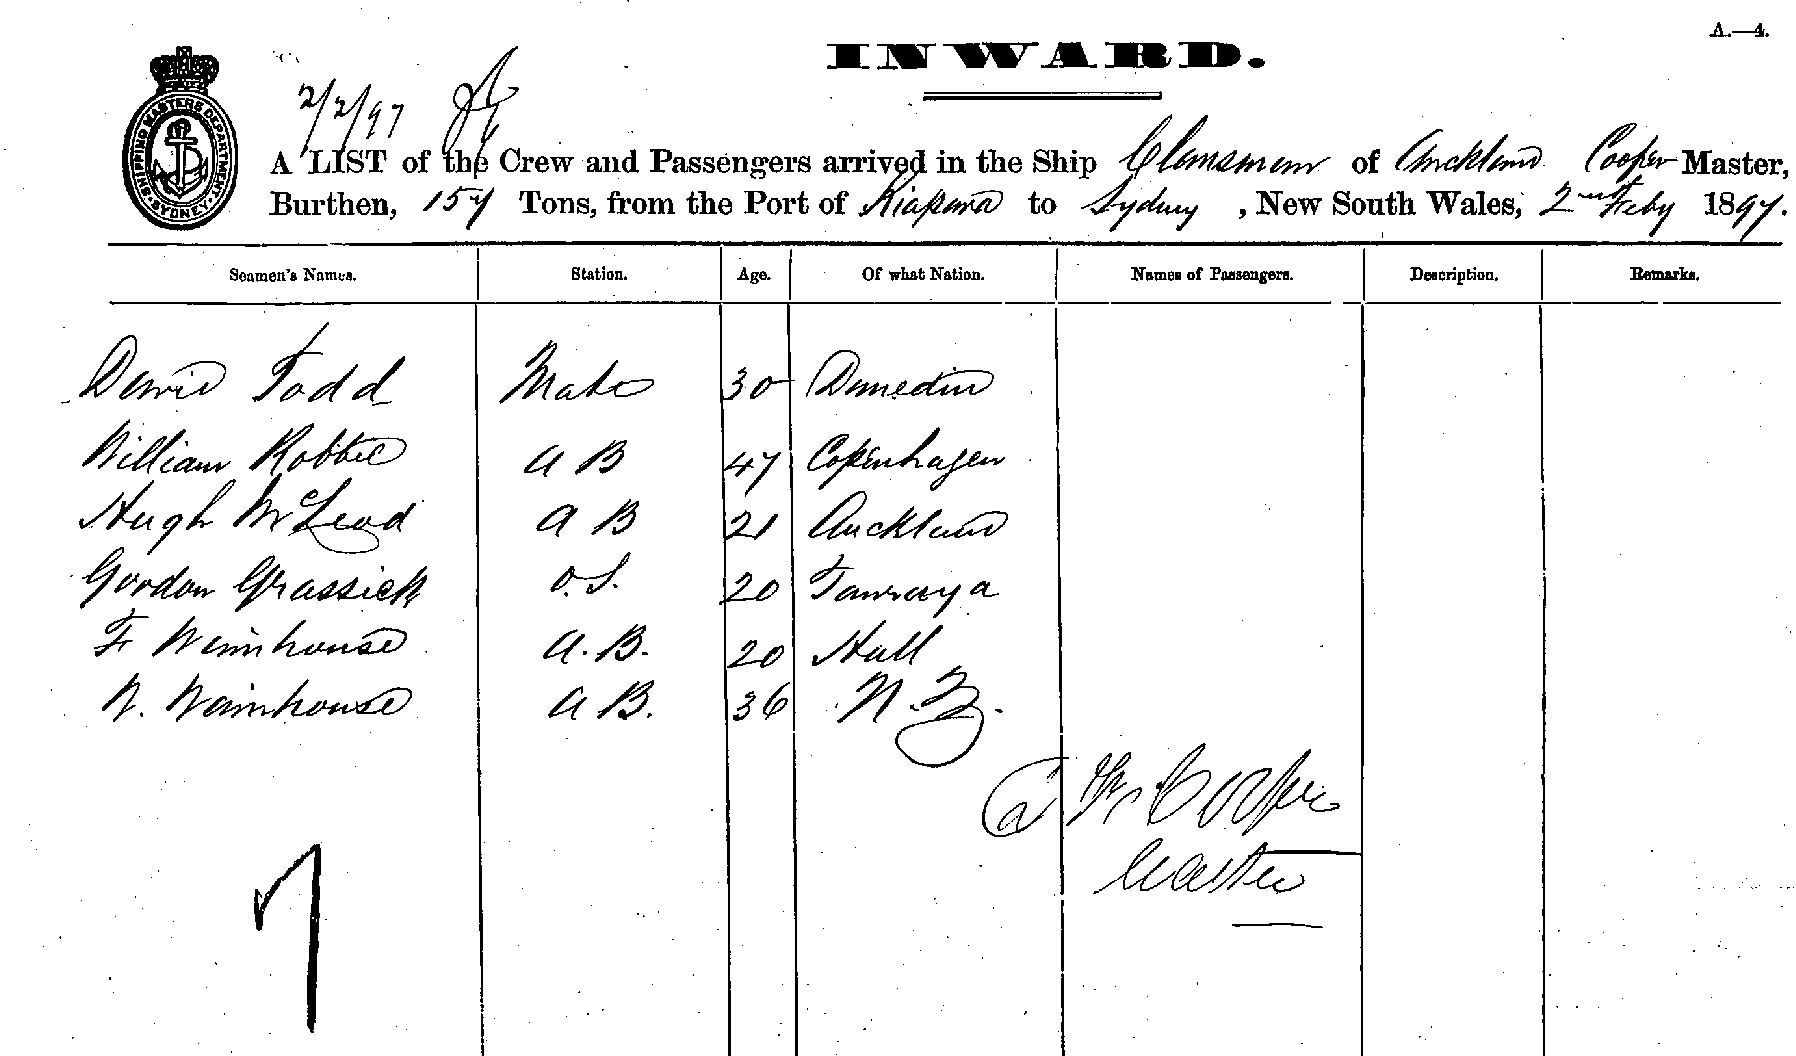 A.—4.
INWARD.
2/2/97
SHIPPING MASTERS DEPARTMENT SYDNEY
A LIST of the Crew and Passengers arrived in the Ship Clansman of Auckland Cooper Master,
Burthen, 157 Tons, from the Port of Kiapara to Sydney, New South Wales, 2nd Feby 1897.
Seamen's Names. Station. Age. Of what Nation. Names of Passengers. Description. Remarks.
David Todd Mate 30 Dunedin
William Robbie A B 47 Copenhagen
Hugh McLeod A B 21 Auckland
Gordon Grassick O.S. 20
F Wainhouse A.B. 20 Hull
W. Wainhouse A B. 36 N.Z.
Cooper
Master
7